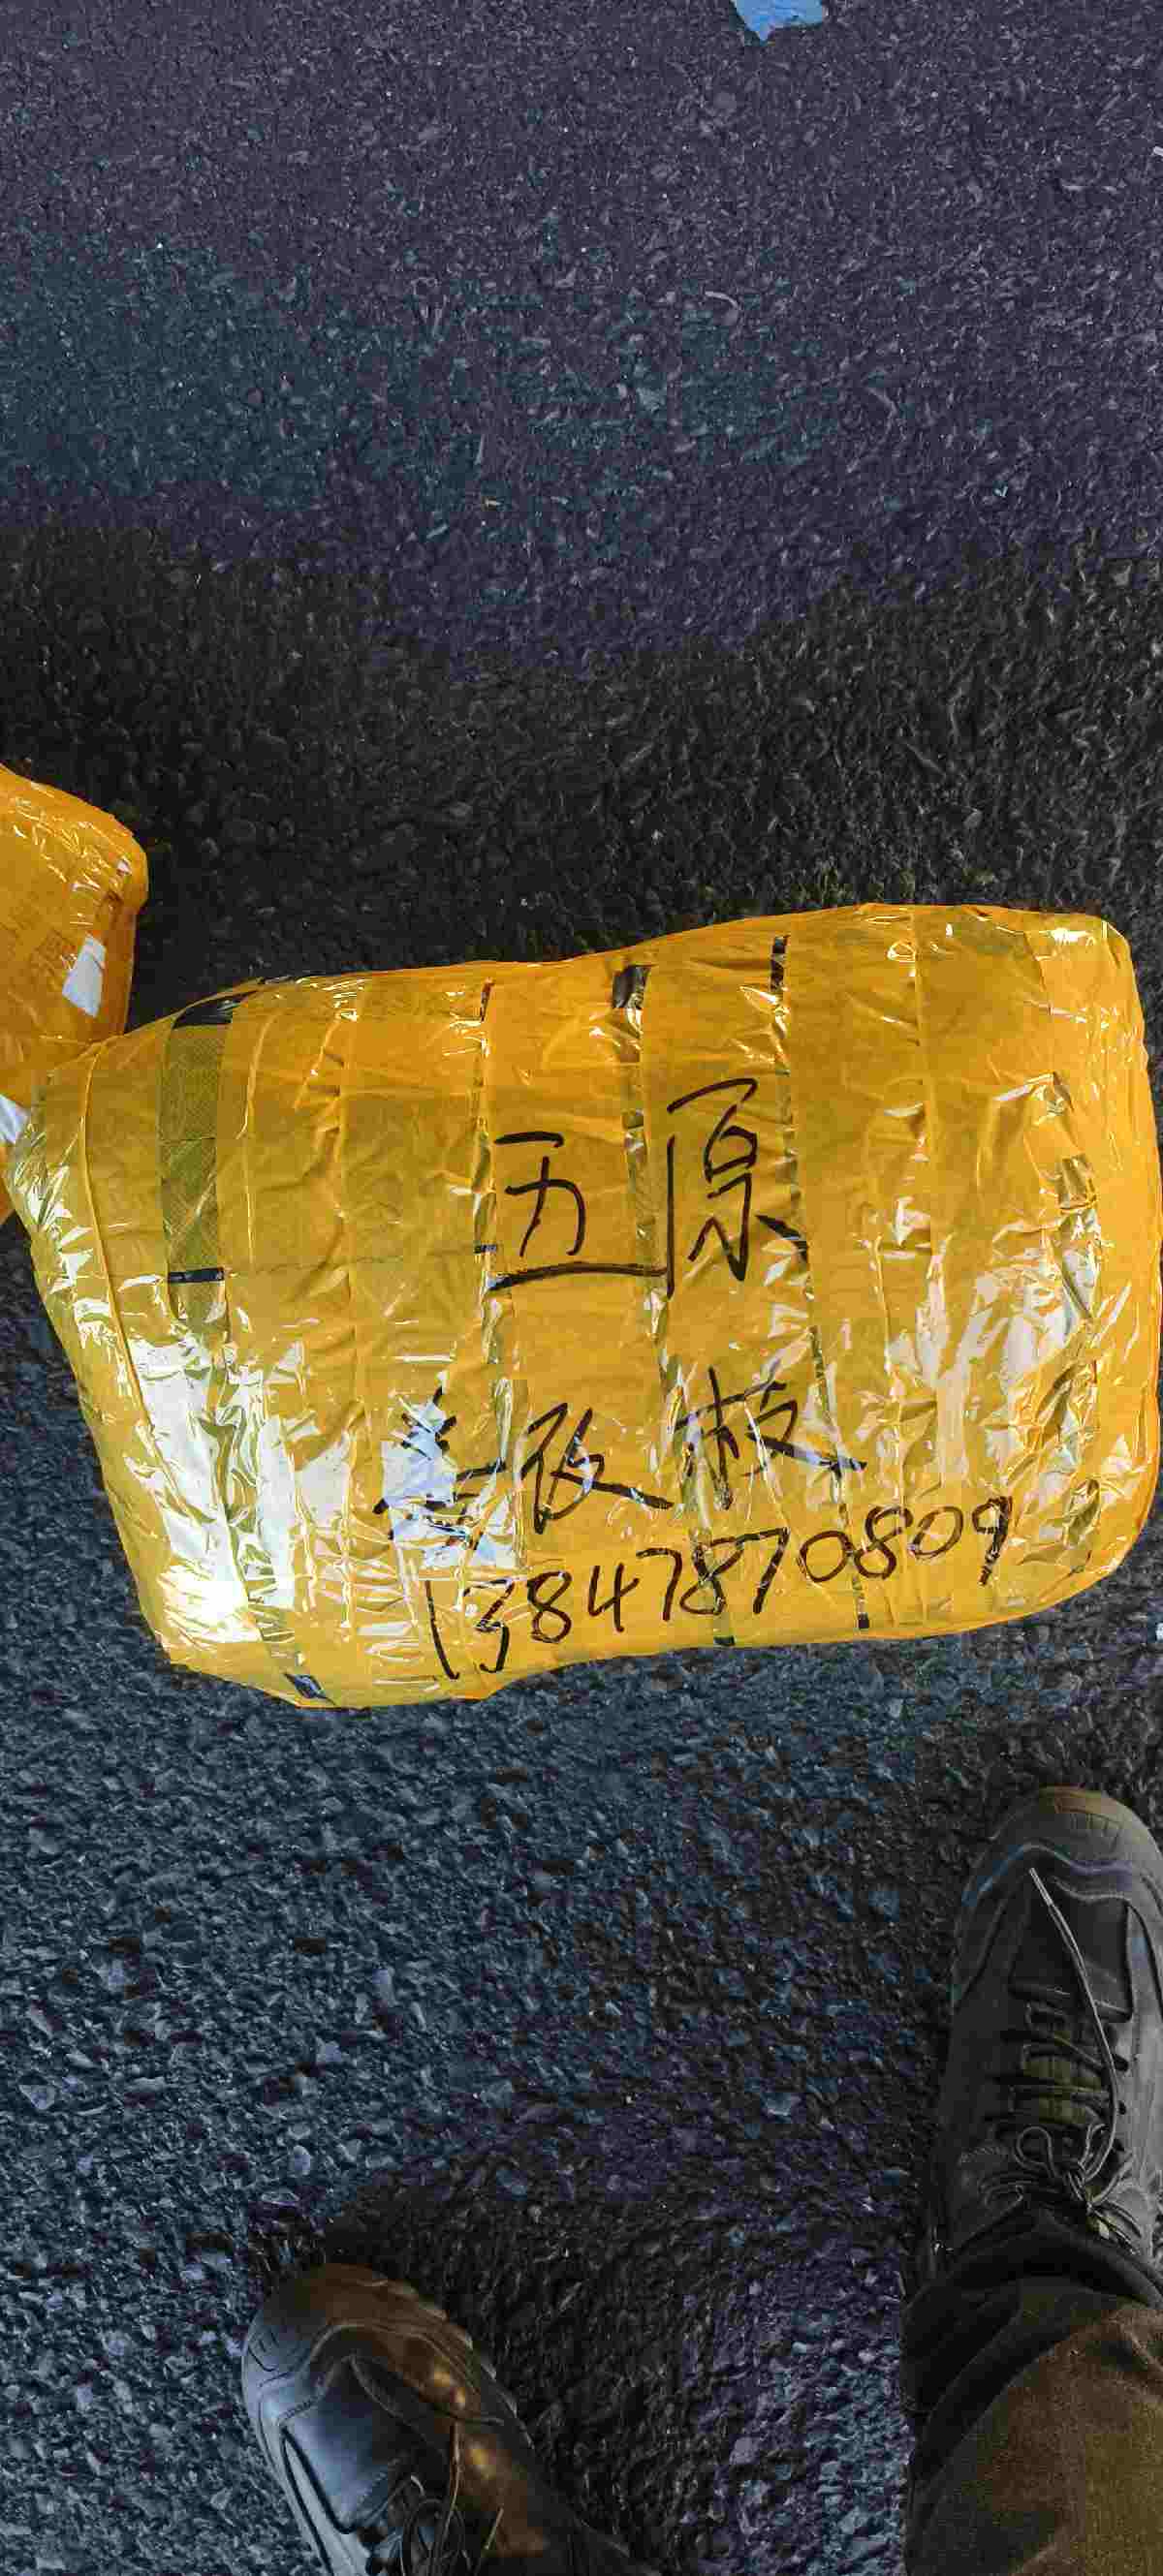 五原
姜改枝
13847870809